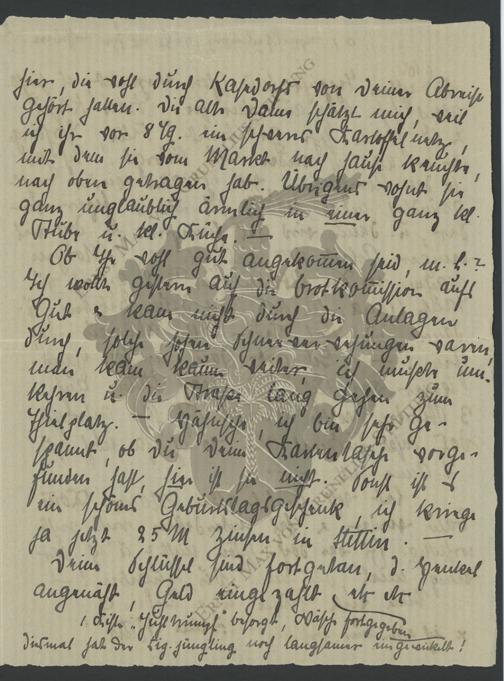 hier, die wohl durch Kasedorfs von Deiner Abreise
gehört hatten. Die alte Dame schätzt mich, weil
ich ihr vor 8 Tg. ein schweres Kartoffelnetz,
mit dem sie vom Markt nach Hause keuchte,
nach oben getragen hab. Übrigens wohnt sie
ganz unglaublich ärmlich in einer ganz kl.
Stube u. kl. Küche. —
Ob Ihr wohl gut angekommen seid, m. L.?
Ich wollte gestern auf die Brotkommission aufs
Gut u kam nicht durch die Anlagen
durch, solche hohen Schneeverwehungen waren,
man kam kaum weiter, ich musste um-
kehren u. die Straße lang gehen zum
platz. — ich bin sehr ge-
spannt, ob Du Deine Kartentasche vorge-
funden hast, hier ist sie nicht. Sonst ist es
ein schönes Geburtstagsgeschenk, ich kriege
ja jetzt 25 M Zinsen in Stettin. —
Deine Schlüssel sind fortgetan, d. Henkel
angenäht, Geld eingezahlt etc etc
besorgt, Wäsche fortgegeben
diesmal hat der jüngling noch langsamer